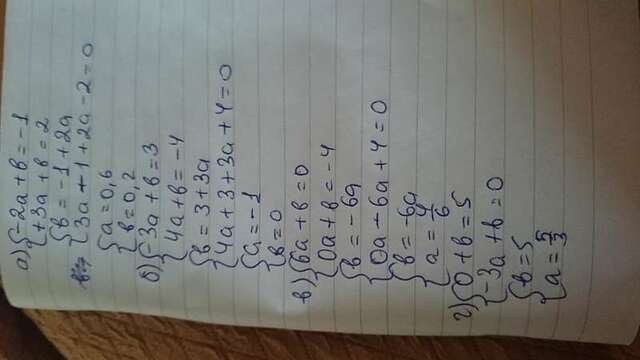 а) {-2a+b=-1
{+3a+b=2
{b=-1+2a
{3a+-1+2a-2=0
{a=0,6
{b=0,2
б) {-3a+b=3
{4a+b=-4
{b=3+3a
{4a+3+3a+4=0
{a=-1
{b=0
в) {6a+b=0
{0a+b=-4
{b=-6a
{0a-6a+4=0
{b=-6a
{a=4/6
г) {0+b=5
{-3a+b=0
{b=5
{a=5/3